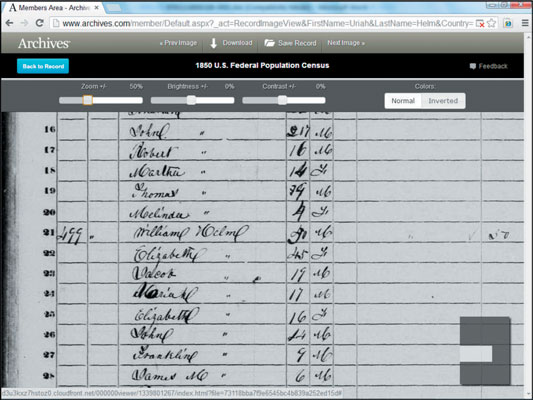 Members Area - Archiv
www.archives.com/member/Default.aspx?_act=RecordImageView&FirstName=Uriah&LastName=Helm&Country=
Archives
« Prev Image Download Save Record Next Image »
Back to Record 1850 U.S. Federal Population Census Feedback
Zoom +/- 50% Brightness +/- 0% Contrast +/- 0% Colors:
Normal Inverted
16 John " M
17 Robert " 16 M
18 Martha " 14 F
19 Thomas " M
20 Melinda " 4 F
21 499 " William Helms M
22 Elizabeth " 45 F
23 " 19 M
24 " 17 M
25 Elizabeth " 16 F
26 John " M
27 Franklin " 9 M
28 James M " 6 M
d3u3kxz7hstoz0.cloudfront.net/000000viewer/1339801267/index.html?file=73118bba7f9e6545bc4b839a252ed15d#